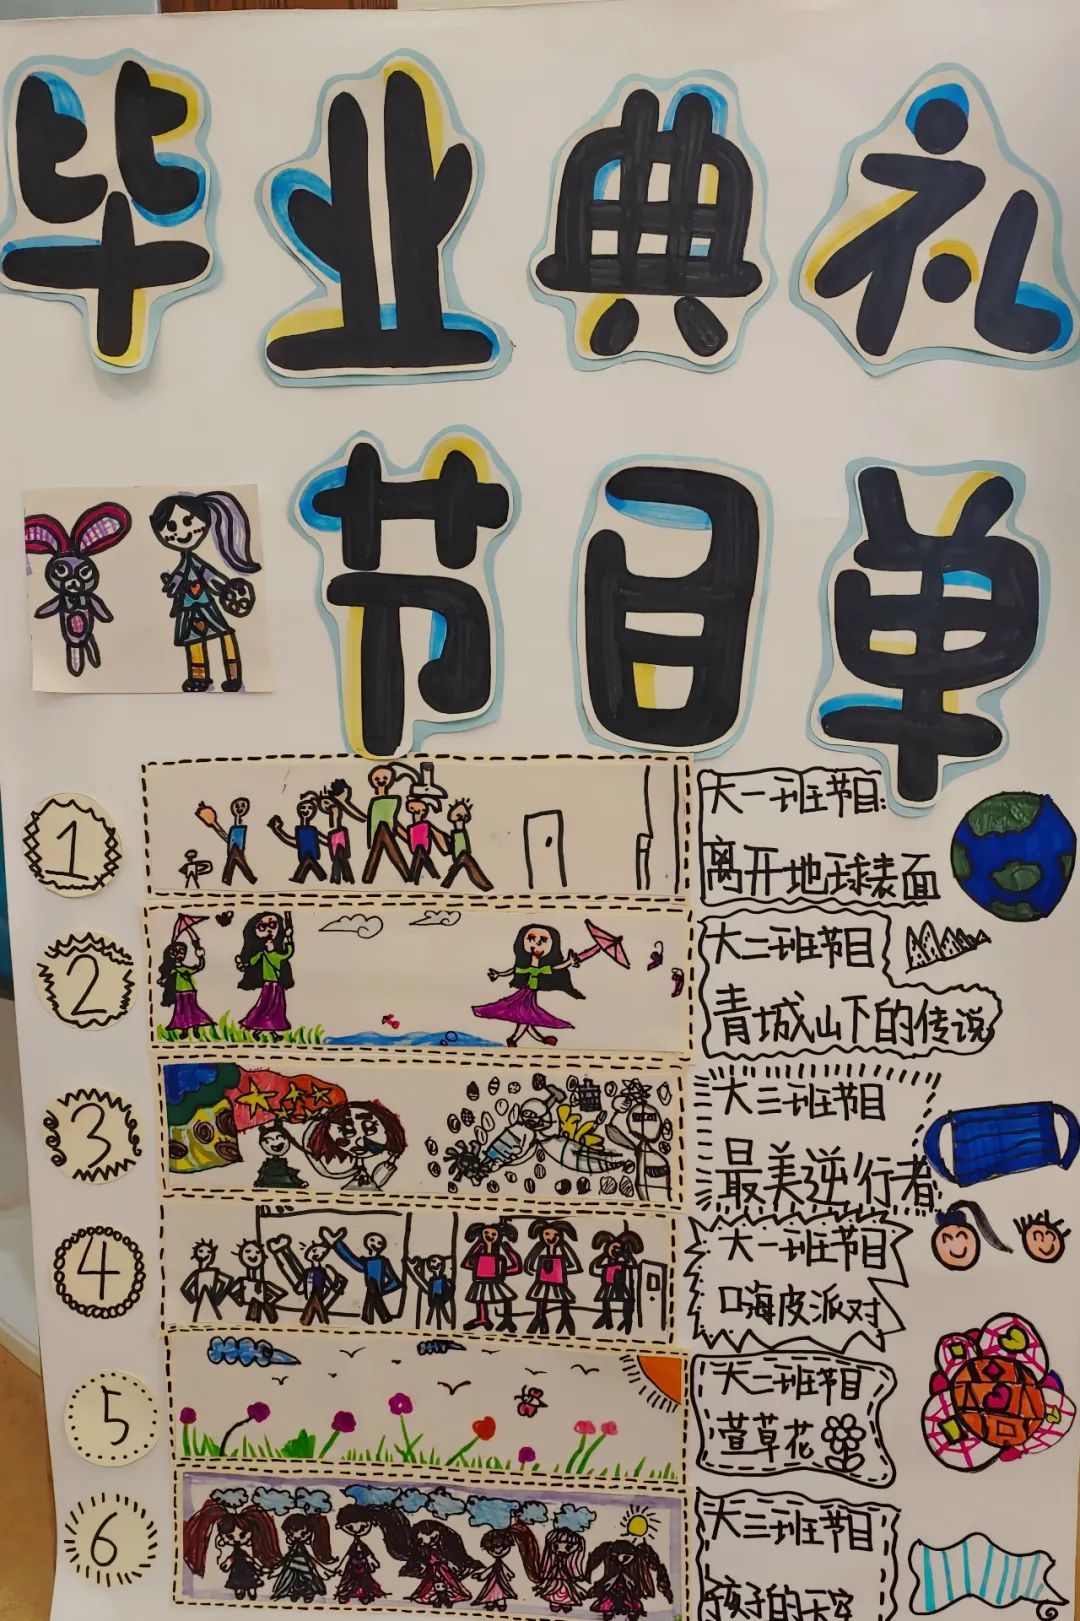 毕业典礼
节目单
1
大一班节目:
离开地球表面
2
大二班节目
青城山下的传说
3
大三班节目
最美逆行者
4
大一班节目
嗨皮派对
5
大二班节目
萱草花
6
大三班节目
孩子的天空